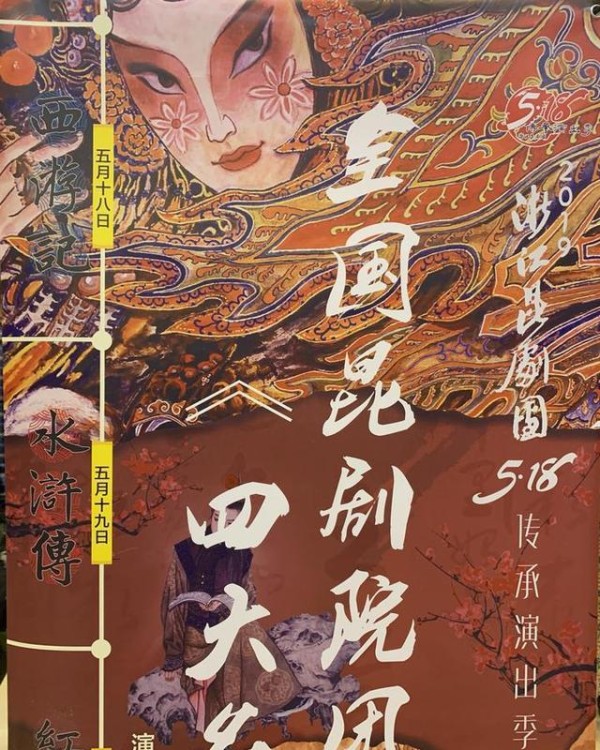 5·18
2019
浙江昆劇團
5·18
传承演出季
全国昆剧院团
《四大名
西游記
五月十八日
水滸傳
五月十九日
紅
演